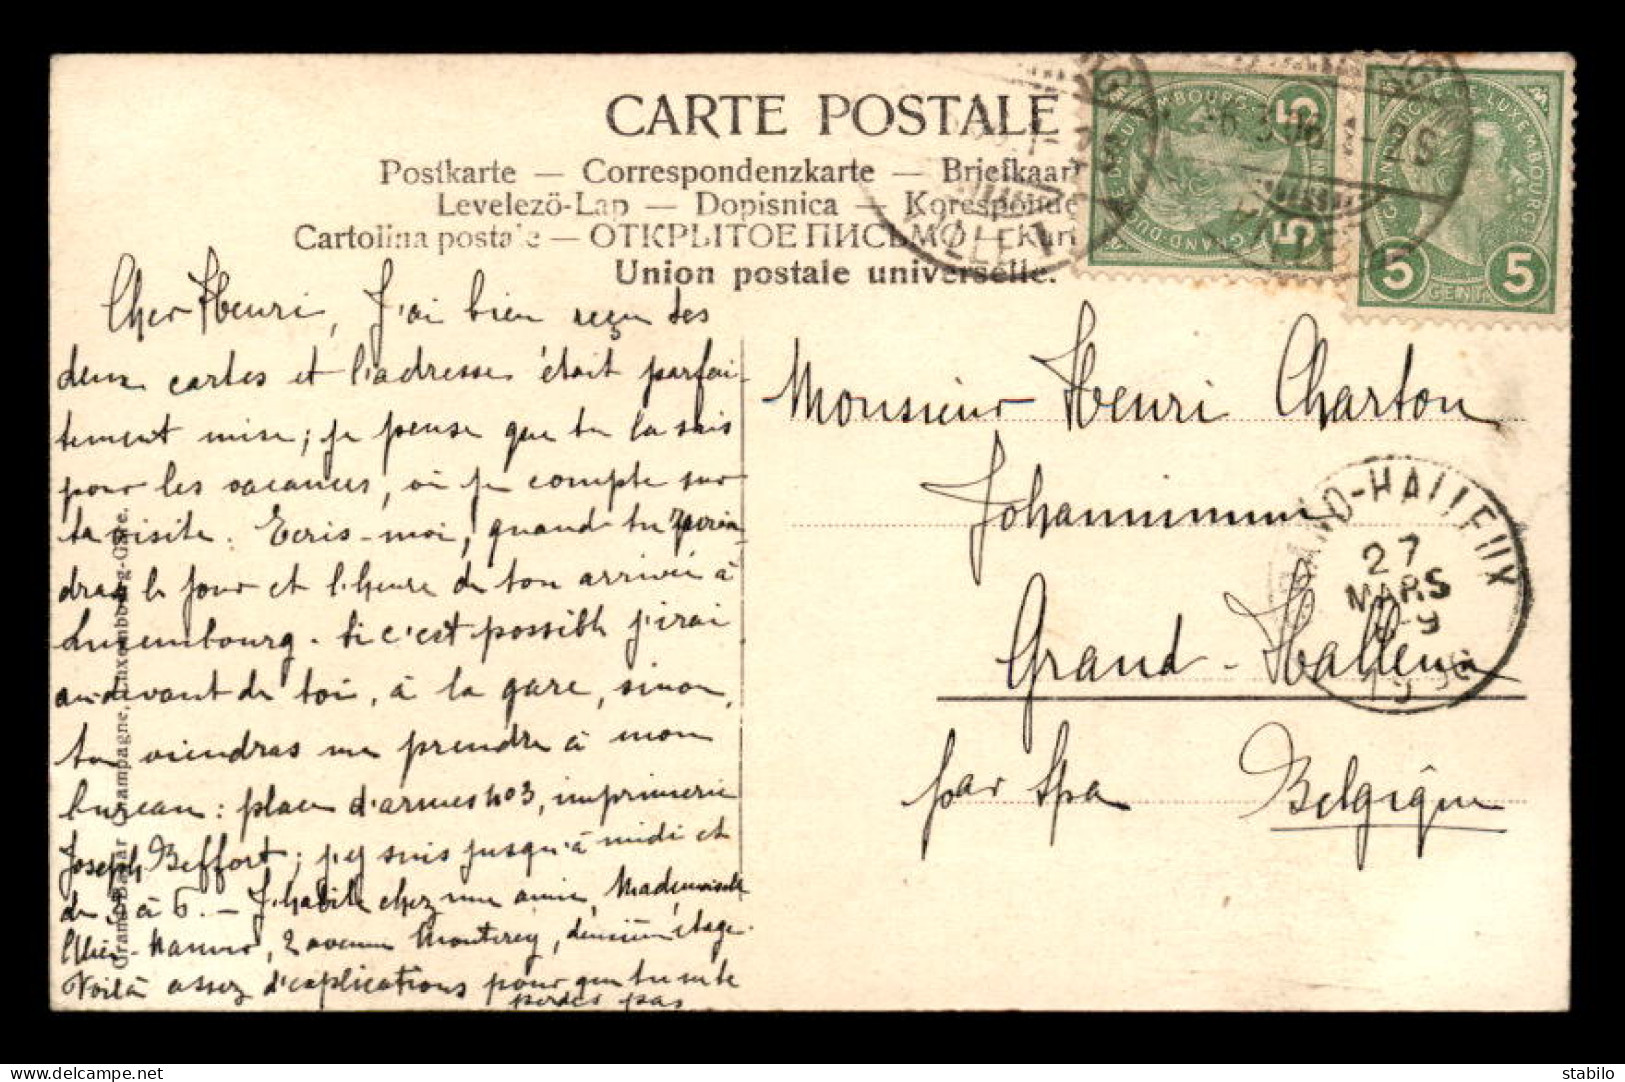 CARTE POSTALE
Postkarte — Correspondenzkarte — Briefkaart
Levelező-Lap — Dopisnica — Koresponde
Cartolina postale — ОТКРЫТОЕ ПИСЬМО — Kart
Union postale universelle.
Cher Henri, J'ai bien reçu tes
deux cartes et l'adresse était parfai-
tement mise; je pense que tu la sais
pour les vacances, où je compte sur
ta visite. Ecris-moi, quand tu
dras le jour et l'heure de ton arrivée à
Luxembourg. Si c'est possible j'irai
au-devant de toi, à la gare, sinon,
tu viendras me prendre à mon
bureau: place d'armes no 3, imprimerie
Joseph Beffort; j'y suis jusqu'à midi et
de à 6. — J'habite chez une amie, Mademoiselle
2 avenue Monterey, deuxième étage.
Voilà assez d'explications pour que tu ne te
perdes pas
Grand Bazar Champagne, Luxembourg-Gare.
Monsieur Henri Charton
Grand-Halleux
par Spa Belgique
GRAND-HALLEUX
27
MARS
GRAND-DUCHÉ DE LUXEMBOURG
5 5
GRAND-DUCHÉ-DE-LUXEMBOURG
5 CENT. 5
stabilo